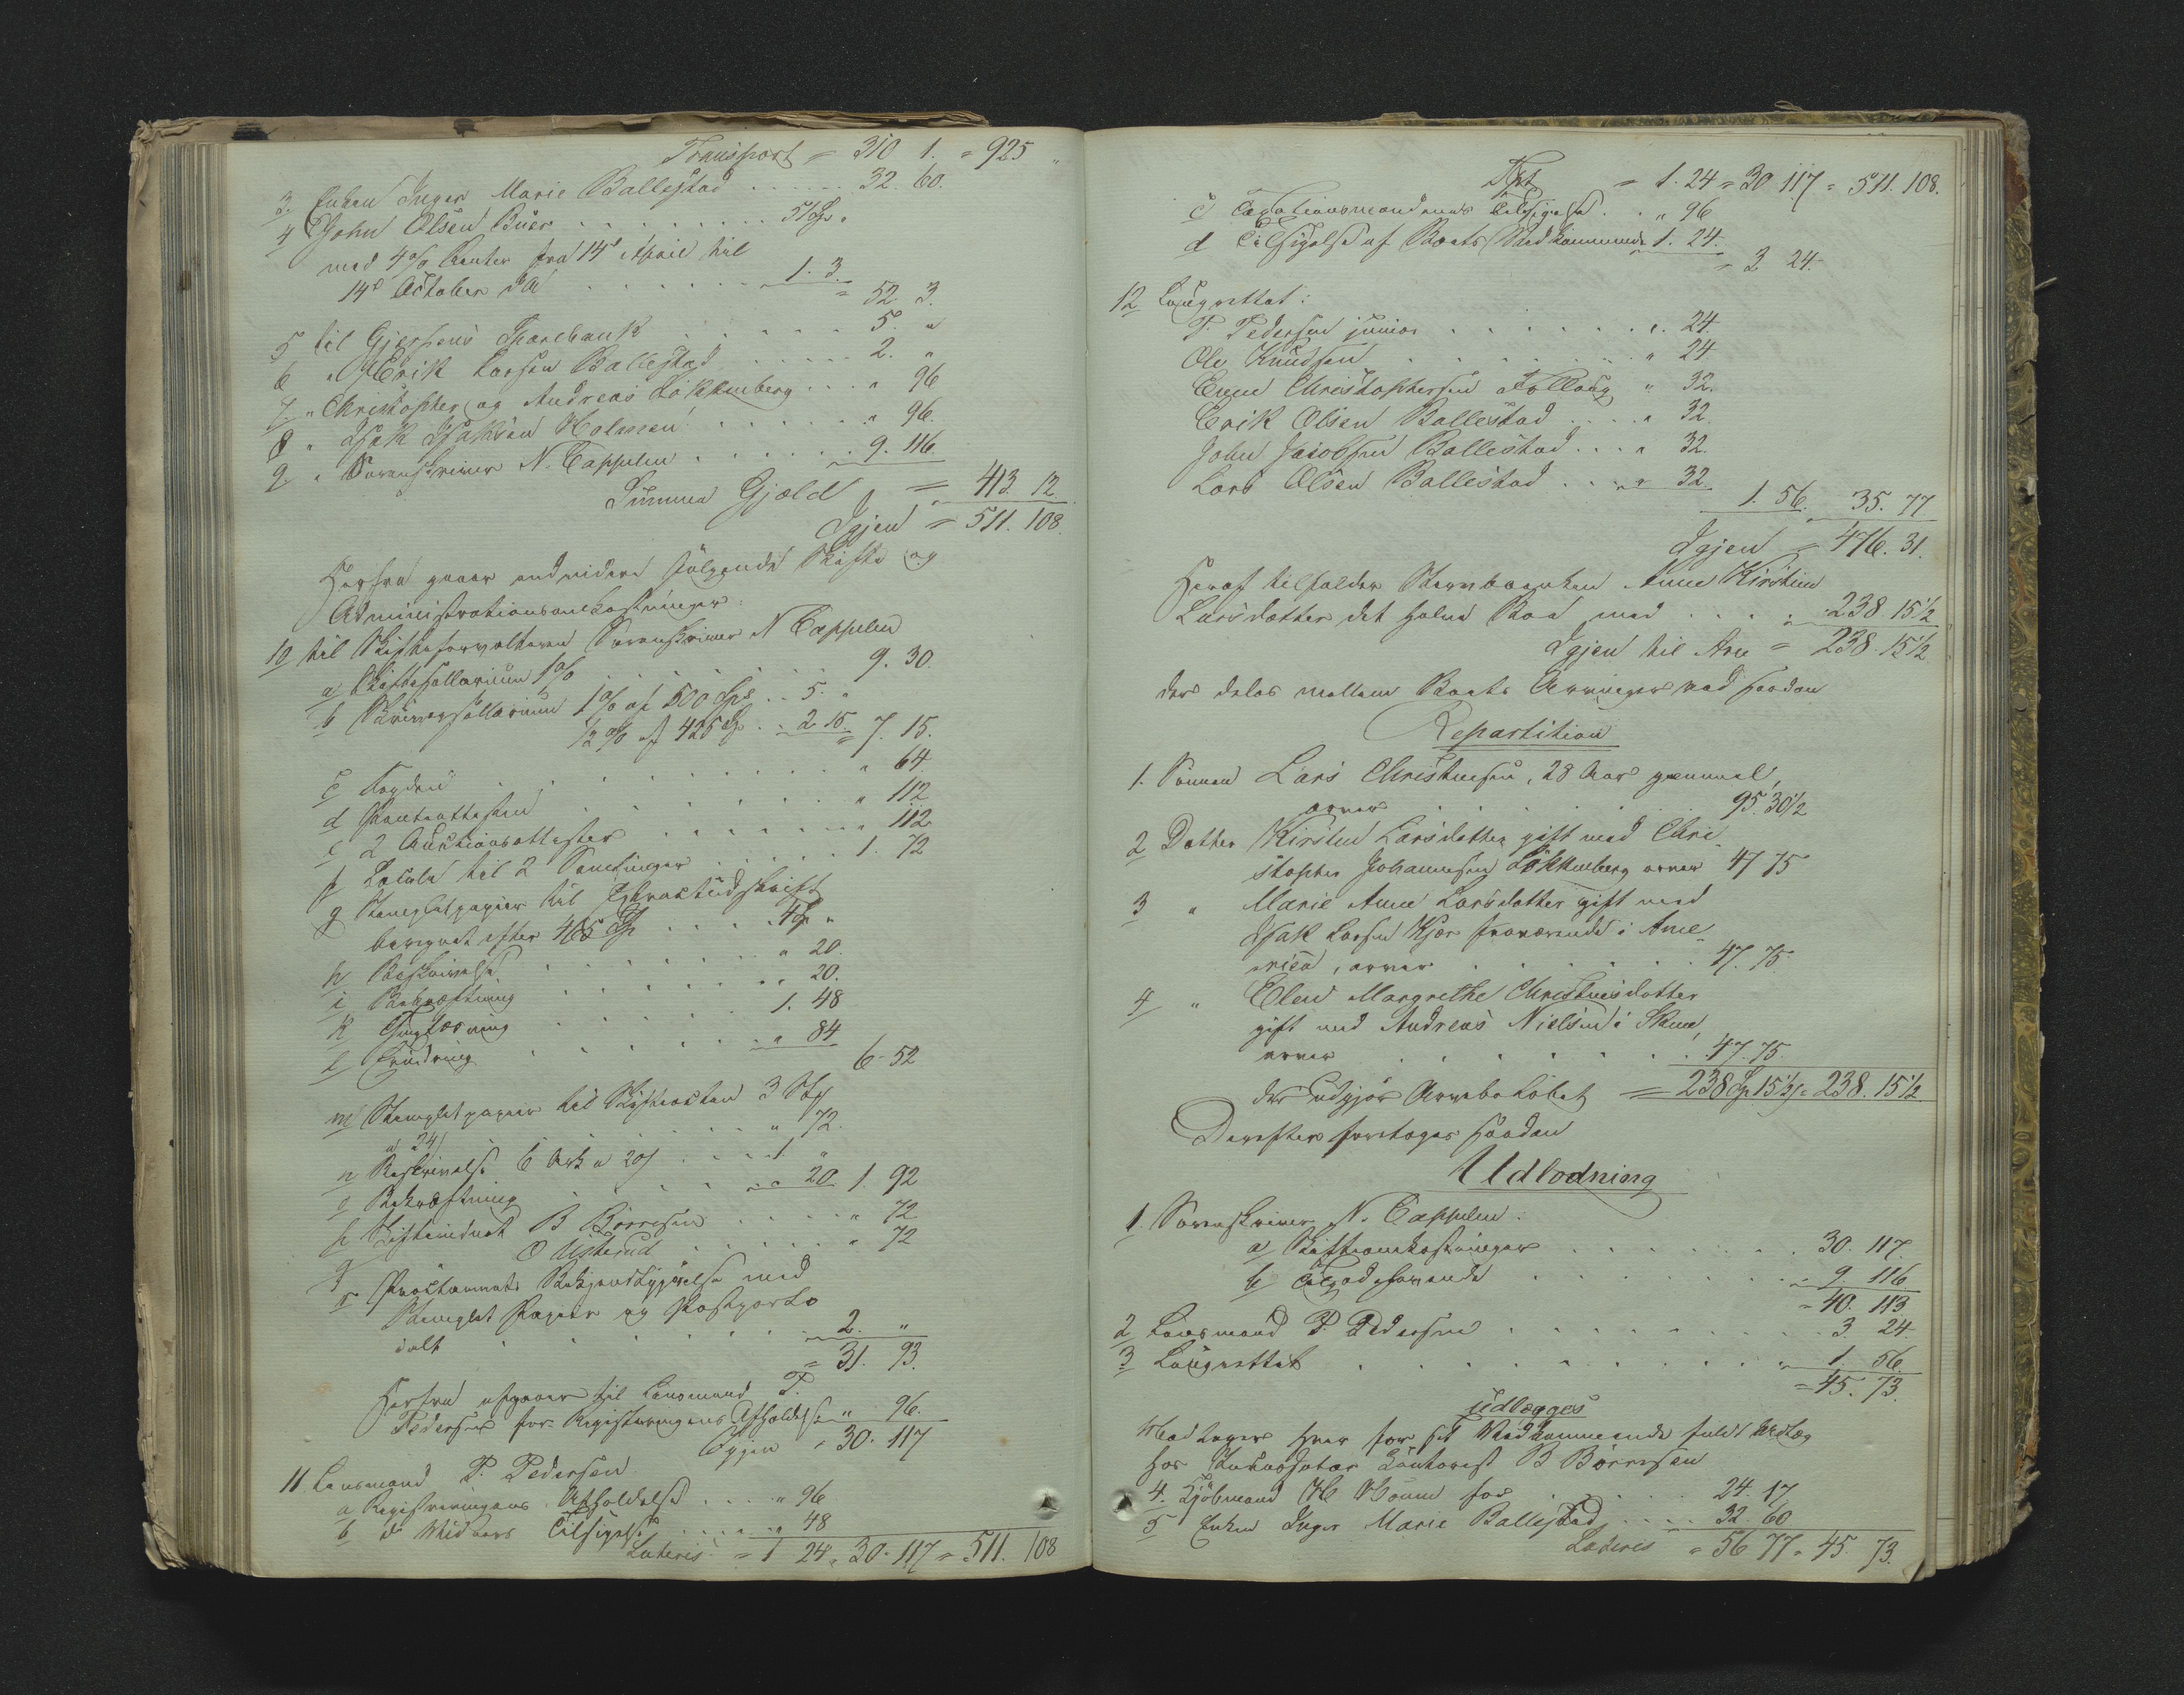 Transport = 310 1. = 925 "
3. Enken Inger Marie Ballestad . . . . . . 32. 60.
4 John Olsen Buer . . . . . . . . . 51 Sp. "
med 4 % Renter fra 14de April til
14de October d.A. . . . . . . 1. 3.
= 52 3.
5 til Gjerpens Sparebank . . . . . 5. "
6 " Erik Larsen Ballestad . . . . . 2. "
7. " Christopher og Andreas Løkkenberg . . . " 96
8 " Isak Isaksen Holmen . . . . . . . " 96.
9. " Sorenskriver N. Cappelen . . . . . . 9. 116.
Summa Gjæld = 413. 12
Igjen = 511. 108.
Herfra gaaer endvidere følgende Skifte og
Administrationsomkostninger:
10 til Skifteforvalteren Sorenskriver N Cappelen
a Skiftesallarium 1 % . . . . . . 9. 30.
b Skriversallarium 1 % af 500 Sp. . . 5. "
½ % af 425 Sp. . . 2. 15. = 7. 15.
c . . . . . . . . " 64
d Panteattesten . . . . . . . " 112
e 2 Auctionsattester . . . . . . " 112
f Locale til 2 Samlinger . . . . . 1. 72
g Stemplet papir til Extractudskrift
beregnet efter 465 Sp . . . . 4 Sp "
h Beskrivelse . . . . . . . " 20.
i Bekræftning . . . . . . " 20.
k Tinglæsning . . . . . 1. 48
l . . . . . . . " 84
6 - 52
m Stemplet papir til Skifteacten 3 Ark
a 24 s . . . . . . . " 72.
n Beskrivelse 6 Ark a 20 s . . . . 1 "
o Bekræftning . . . . . . . " 20 1. 92
p Skiftevidnet B Börresen . . . . . " 72
q O Usterud . . . . . " 72
r Proclamats Bekjendtgjørelse med
Stemplet Papir og Postporto
ialt . . . . . . . 2. "
= 31. 93.
Herfra afgaaer til Lensmand P.
Pedersen for Registreringens Afholdelse " 96.
Igjen = 30. 117
11 Lensmand P. Pedersen
a Registreringens Afholdelse . . . . " 96
b do Vidners Tilsigelse . . . . . " 48
Lateris = 1 24 = 30. 117 = 511. 108
Tspt = 1. 24 = 30 117 = 511. 108.
c Taxationsmændenes Tilsigelse . . " 96
d Tilsigelse af Boets Vedkommende 1. 24.
= 3 24.
12 Laugrettet:
P. Pedersen junior . . . . . . . ". 24.
Ole Knudsen . . . . . . . . " 24
Even Christophersen " 32.
Erik Olsen Ballestad . . . . " 32
John Jacobsen Ballestad . . . " 32.
Lars Olsen Ballestad . . . . " 32
1. 56. 35. 77
Igjen = 476. 31.
Heraf tilfalder Stervboenken Anne Kirstine
Larsdatter det halve Boe med . . . . 238. 15½
Igjen til Arv = 238. 15½
der deles mellem Boets Arvinger ved saadan
Repartition
1. Sønnen Lars Christensen, 28 Aar gammel,
arver . . . . . . . . 95. 30½
2 Datter Kirsten Larsdatter gift med Chri-
stopher Johannesen Løkkenberg arver 47 75
3 " Marie Anne Larsdatter gift med
Isak Larsen Kjær fraværende i Ame-
rica, arver . . . . . . . 47. 75.
4 " Elen Margrethe Christensdatter
gift med Andreas Nielsen i Skien,
arver . . . . . . . . . 47. 75.
der udgjør Arvebeløbet = 238 Sp. 15½ s = 238. 15½
Derefter foretages saadan
Udlodning
1. Sorenskriver N. Cappelen:
a Skifteomkostninger . . . . . . . 30. 117.
b Tilgodehavende . . . . . . . . 9. 116.
= 40. 113.
2 Lensmand P. Pedersen . . . . . . . . . 3. 24.
3 Laugrettet . . . . . . . . . . . 1. 56.
= 45. 73.
Udlægges
Modtager hver for sit Vedkommende fuldt Udlæg
hos Incassator Contorist B Börresen
4. Kjøbmand H Houen for . . . . . 24. 17
5 Enken Inger Marie Ballestad . . . . 32 60
Lateris = 56 77 = 45 73.